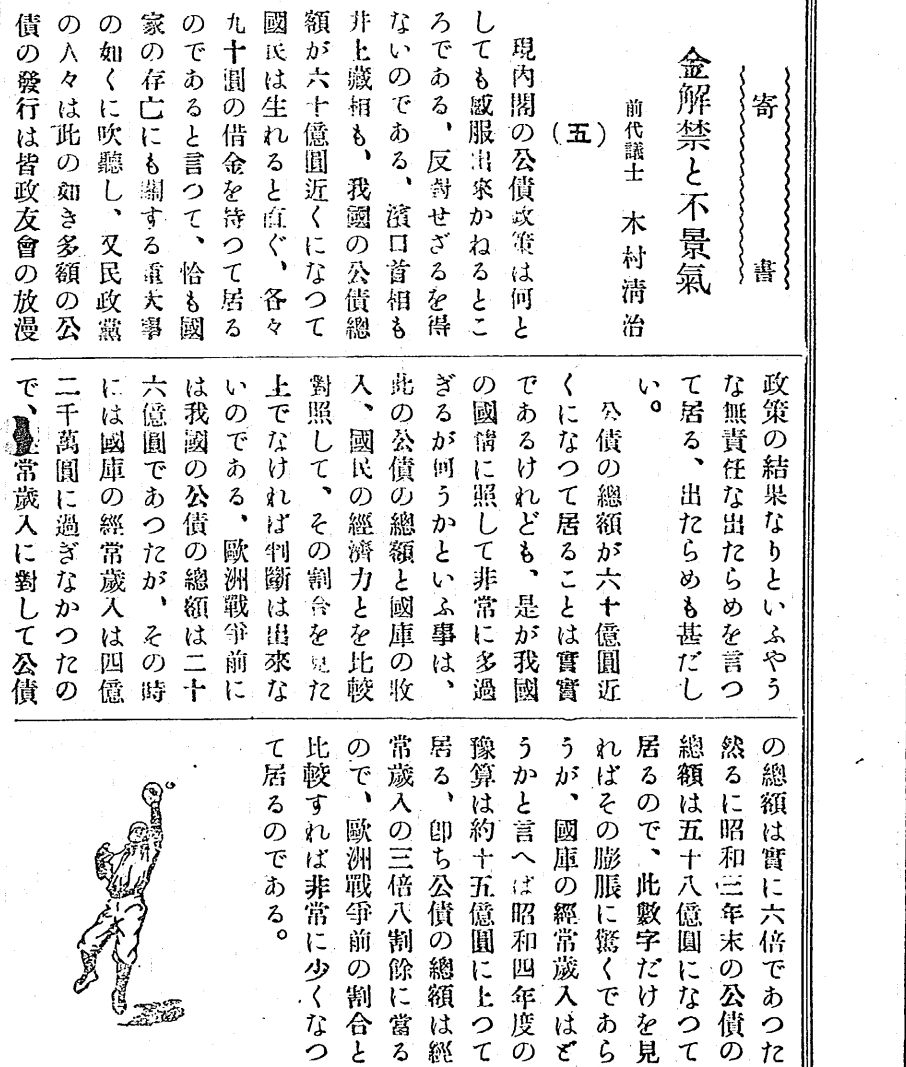 寄書
金解禁と不景氣
前代議士 木村淸治
（五）
現內閣の公債政策は何と
しても感服出來かねるとこ
ろである、反對せざるを得
ないのである、濱口首相も
井上藏相も、我國の公債總
額が六十億圓近くになつて
國民は生れると直ぐ、各々
九十圓の借金を待つて居る
のであると言つて、恰も國
家の存亡にも關する重大事
の如くに吹聽し、又民政黨
の人々は此の如き多額の公
債の發行は皆政友會の放漫
政策の結果なりといふやう
な無責任な出たらめを言つ
て居る、出たらめも甚だし
い。
公債の總額が六十億圓近
くになつて居ることは實實
であるけれども、是が我國
の國情に照して非常に多過
ぎるが何うかといふ事は、
此の公債の總額と國庫の收
入、國民の經濟力とを比較
對照して、その割合を見た
上でなければ判斷は出來な
いのである、歐洲戰爭前に
は我國の公債の總額は二十
六億圓であつたが、その時
には國庫の經常歲入は四億
二千萬圓に過ぎなかつたの
で、常歲入に對して公債
の總額は實に六倍であつた
然るに昭和三年末の公債の
總額は五十八億圓になつて
居るので、此數字だけを見
ればその膨脹に驚くであら
うが、國庫の經常歲入はど
うかと言へば昭和四年度の
豫算は約十五億圓に上つて
居る、卽ち公債の總額は經
常歲入の三倍八割餘に當る
ので、歐洲戰爭前の割合と
比較すれば非常に少くなつ
て居るのである。